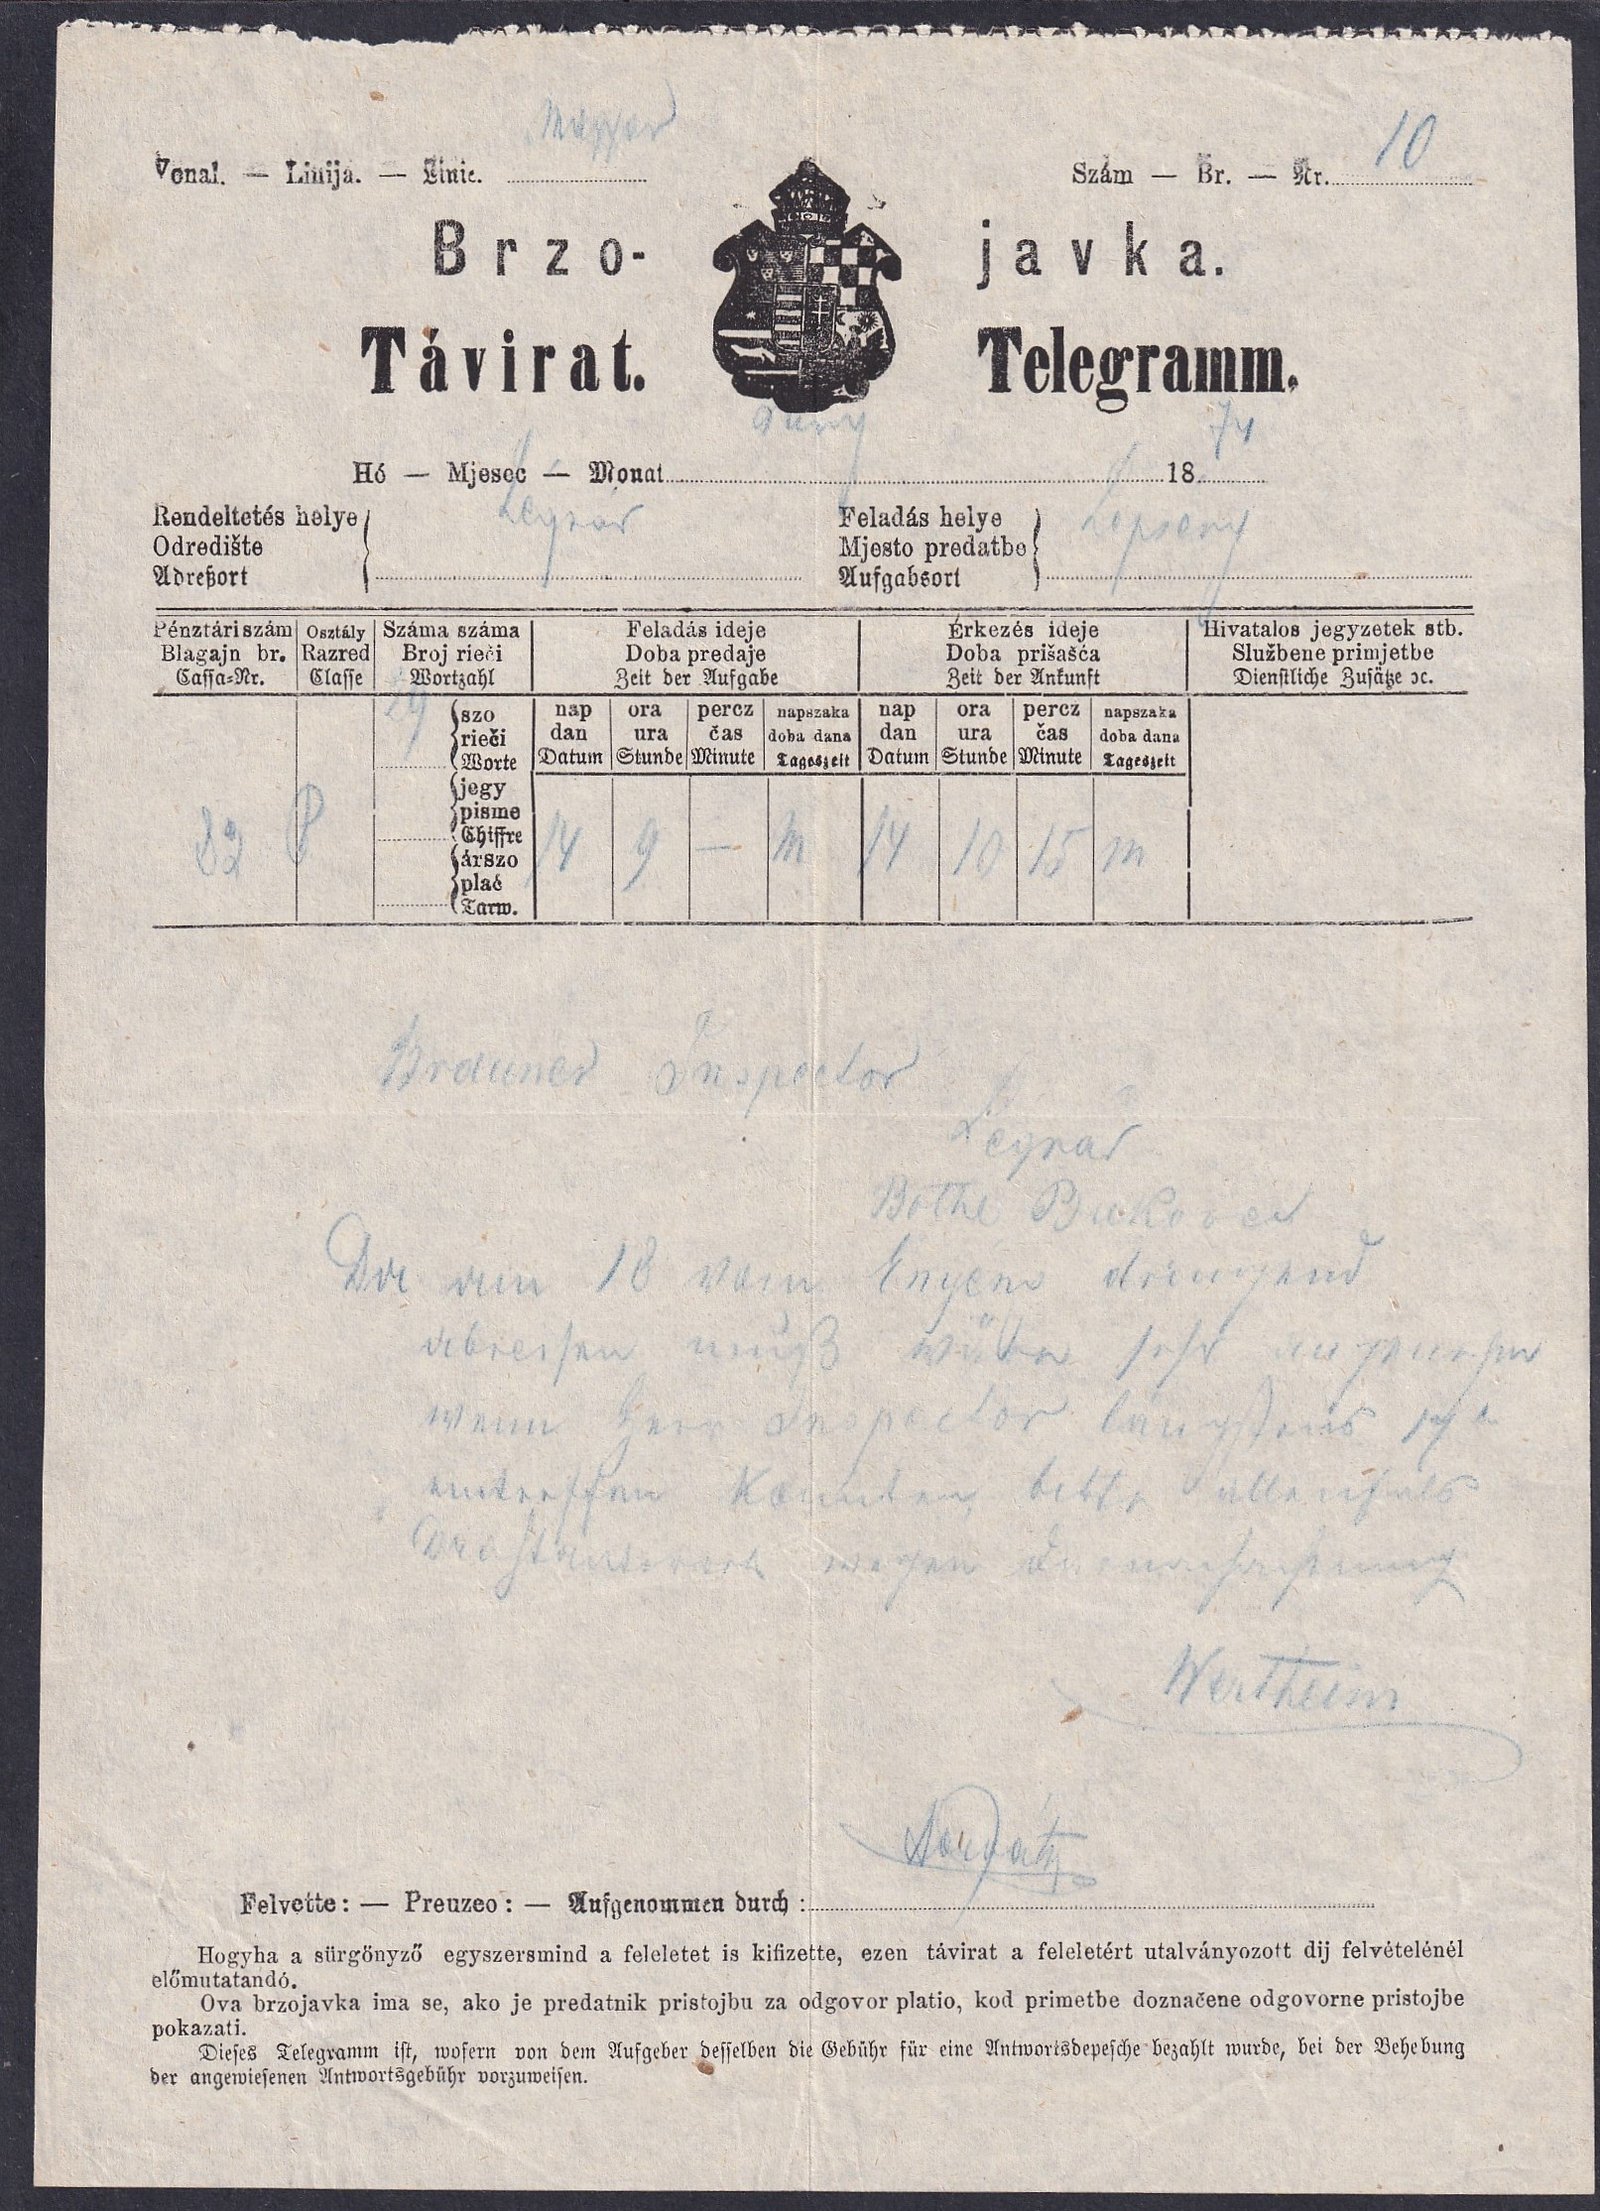 Magyar
Vonal. — Linija. — Linie.
Szám — Br. — Nr. 10
Brzo- javka.
Távirat. Telegramm.
Hó — Mjesec — Monat 1874
Rendeltetés helye
Odredište
Adreßort
Legrad
Feladás helye
Mjesto predatbe
Aufgabsort
Lepseny
Pénztári szám Osztály Száma száma Feladás ideje Érkezés ideje Hivatalos jegyzetek stb.
Blagajn br. Razred Broj rieči Doba predaje Doba prišašća Službene primjetbe
Cassa-Nr. Classe Wortzahl Zeit der Aufgabe Zeit der Ankunft Dienstliche Zusätze ꝛc.
29 szo nap ora percz napszaka nap ora percz napszaka
rieči dan ura čas doba dana dan ura čas doba dana
Worte Datum Stunde Minute Tageszeit Datum Stunde Minute Tageszeit
jegy
pisme
Chiffre
82 P 14 9 — M 14 10 15 M
árszo
plać
Tarw.
Brauner Inspector
Legrad
Bothe Bukovec
Da am 18 dringend
abreisen muß wäre sehr
wenn Herr Inspector längstens 17
eintreffen könnten, bitte allenfals
Drahtantwort wegen
Wertheim
Felvette: — Preuzeo: — Aufgenommen durch:
Hogyha a sürgönyző egyszersmind a feleletet is kifizette, ezen távirat a feleletért utalványozott dij felvételénél
előmutatandó.
Ova brzojavka ima se, ako je predatnik pristojbu za odgovor platio, kod primetbe doznačene odgovorne pristojbe
pokazati.
Dieses Telegramm ist, wofern von dem Aufgeber desselben die Gebühr für eine Antwortsdepesche bezahlt wurde, bei der Behebung
der angewiesenen Antwortsgebühr vorzuweisen.